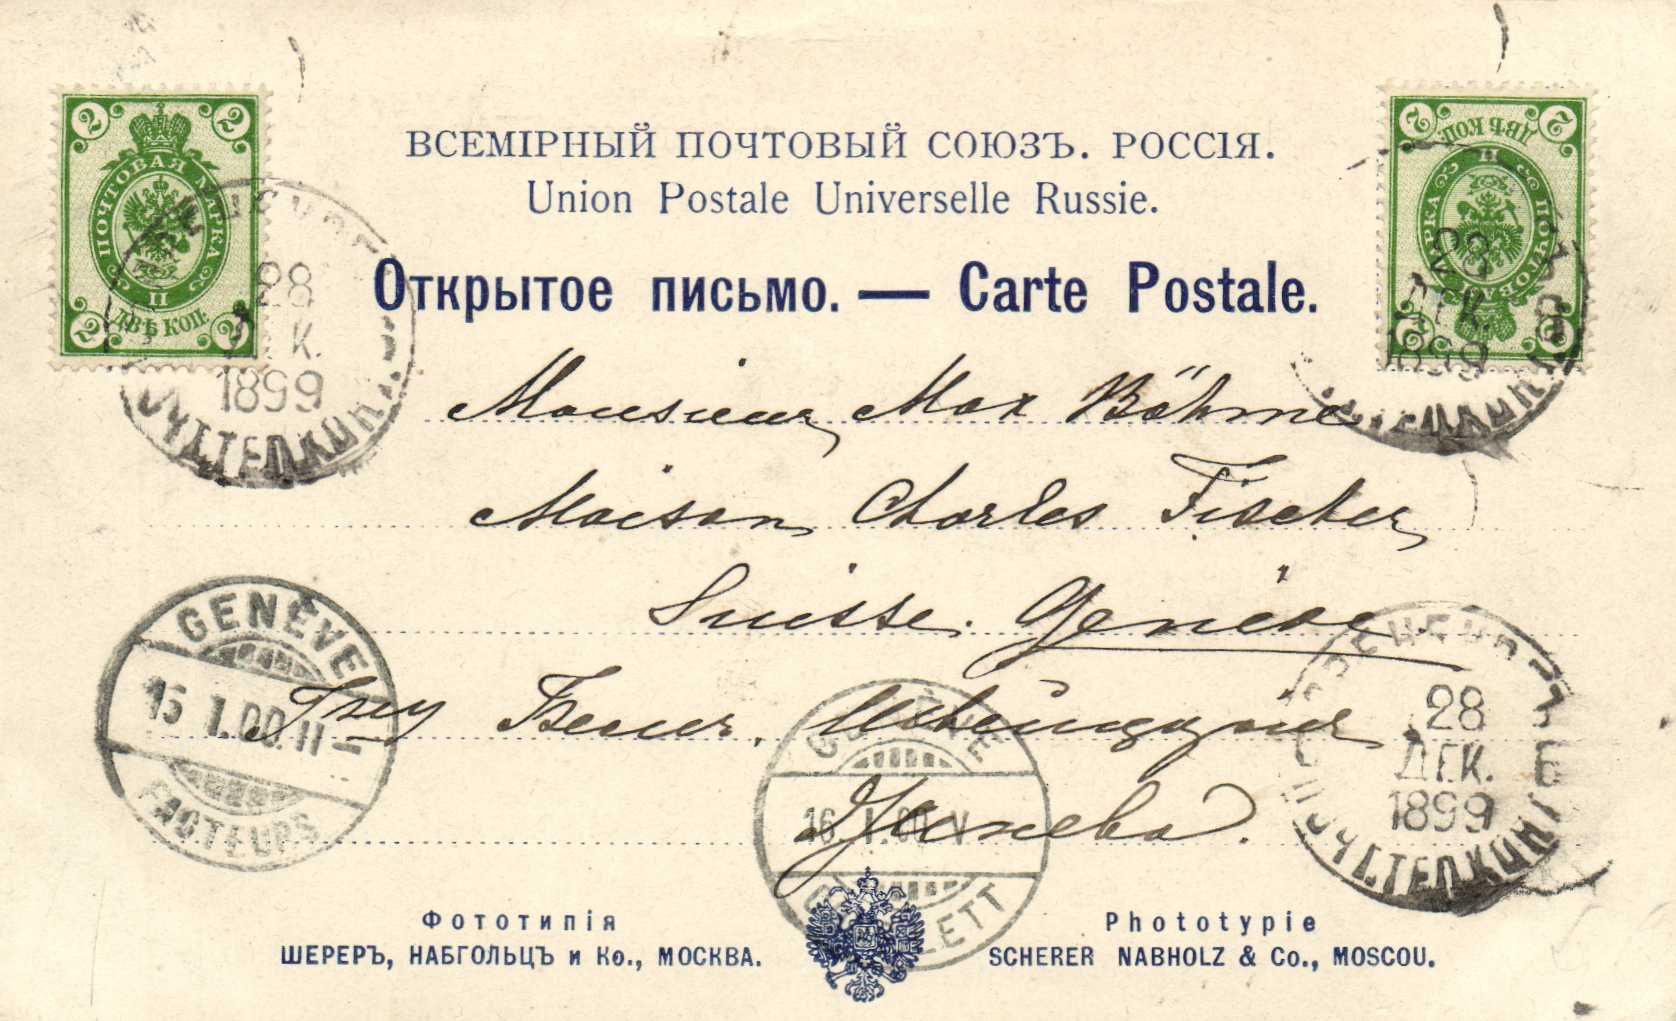 ВСЕМІРНЫЙ ПОЧТОВЫЙ СОЮЗЪ. РОССІЯ.
Union Postale Universelle Russie.
Открытое письмо. — Carte Postale.
2 2
ПОЧТОВАЯ МАРКА
II
ДВѢ КОП.
2 2
2 2
ПОЧТОВАЯ МАРКА
II
ДВѢ КОП.
2 2
28
1899
ПОЧТ ТЕЛ КОН
28
ДЕК.
1899
Monsieur Max Böhme
Maison Charles Fischer
Suisse. Genève
GENÈVE
15 I.00. II
FACTEURS
Швейцарія
Женева.
GENÈVE
16 I 00 V
28
ДЕК.
1899
ПОЧТ. ТЕЛ КОН
Фототипія
ШЕРЕРЪ, НАБГОЛЬЦЪ и Ко., МОСКВА.
Phototypie
SCHERER NABHOLZ & Co., MOSCOU.